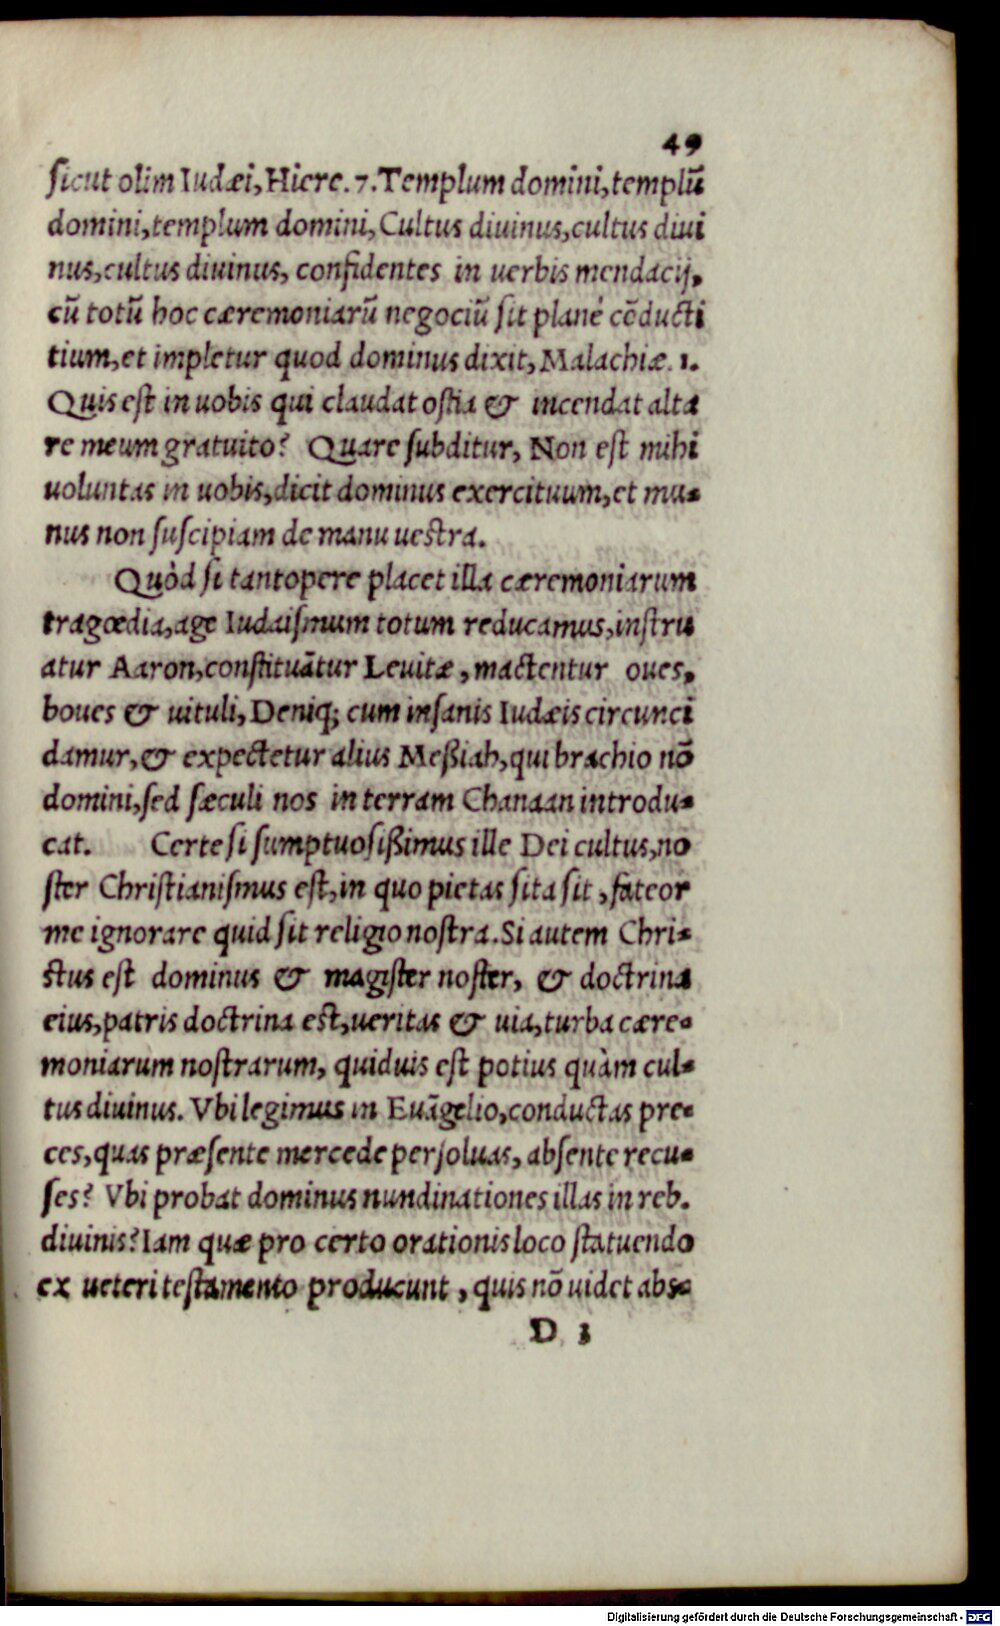 49
sicut olim Iudæi, Hiere. 7. Templum domini, templũ
domini, templum domini, Cultus diuinus, cultus diui
nus, cultus diuinus, confidentes in uerbis mendacij,
cũ totũ hoc cæremoniarũ negociũ sit planè cõducti
tium, et impletur quod dominus dixit, Malachiæ. 1.
Quis est in uobis qui claudat ostia & incendat alta
re meum gratuito? Quare subditur, Non est mihi
uoluntas in uobis, dicit dominus exercituum, et mu-
nus non suscipiam de manu uestra.
Quòd si tantopere placet illa cæremoniarum
tragœdia, age Iudaismum totum reducamus, instru
atur Aaron, constituãtur Leuitæ, mactentur oues,
boues & uituli, Deniq; cum insanis Iudæis circunci
damur, & expectetur alius Meßiah, qui brachio nõ
domini, sed sæculi nos in terram Chanaan introdu-
cat. Certe si sumptuosißimus ille Dei cultus, no
ster Christianismus est, in quo pietas sita sit, fateor
me ignorare quid sit religio nostra. Si autem Chri-
stus est dominus & magister noster, & doctrina
eius, patris doctrina est, ueritas & uia, turba cære-
moniarum nostrarum, quiduis est potius quàm cul-
tus diuinus. Vbi legimus in Euãgelio, conductas pre-
ces, quas præsente mercede persoluas, absente recu-
ses? Vbi probat dominus nundinationes illas in reb.
diuinis? Iam quæ pro certo orationis loco statuendo
ex ueteri testamento producunt, quis nõ uidet abs-
D 1
Digitalisierung gefördert durch die Deutsche Forschungsgemeinschaft - DFG